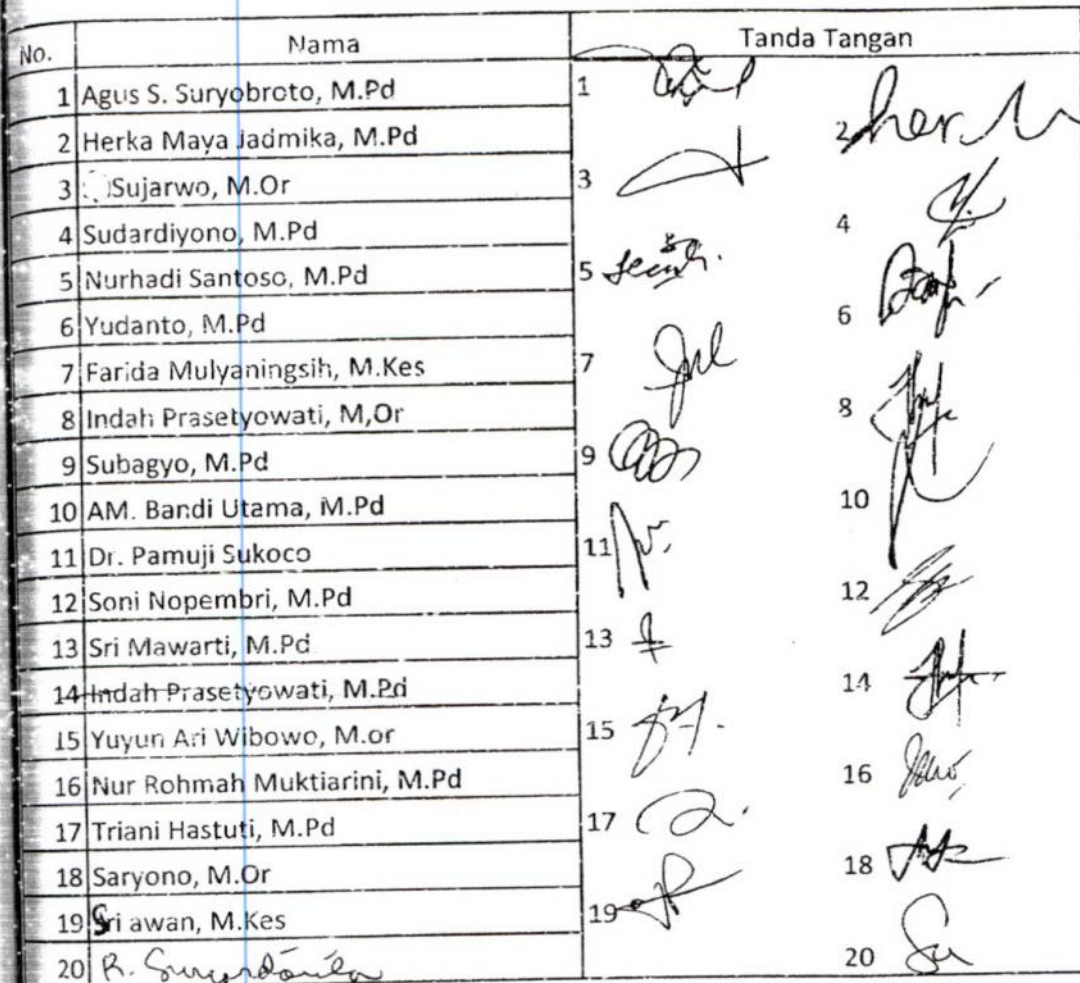 No. Nama Tanda Tangan
1 Agus S. Suryobroto, M.Pd 1
2 Herka Maya Jadmika, M.Pd 2
3 Sujarwo, M.Or 3
4 Sudardiyono, M.Pd 4
5 Nurhadi Santoso, M.Pd 5
6 Yudanto, M.Pd 6
7 Farida Mulyaningsih, M.Kes 7
8 Indah Prasetyowati, M,Or 8
9 Subagyo, M.Pd 9
10 AM. Bandi Utama, M.Pd 10
11 Dr. Pamuji Sukoco 11
12 Soni Nopembri, M.Pd 12
13 Sri Mawarti, M.Pd 13
14 Indah Prasetyowati, M.Pd 14
15 Yuyun Ari Wibowo, M.or 15
16 Nur Rohmah Muktiarini, M.Pd 16
17 Triani Hastuti, M.Pd 17
18 Saryono, M.Or 18
19 Sri awan, M.Kes 19
20 R. 20